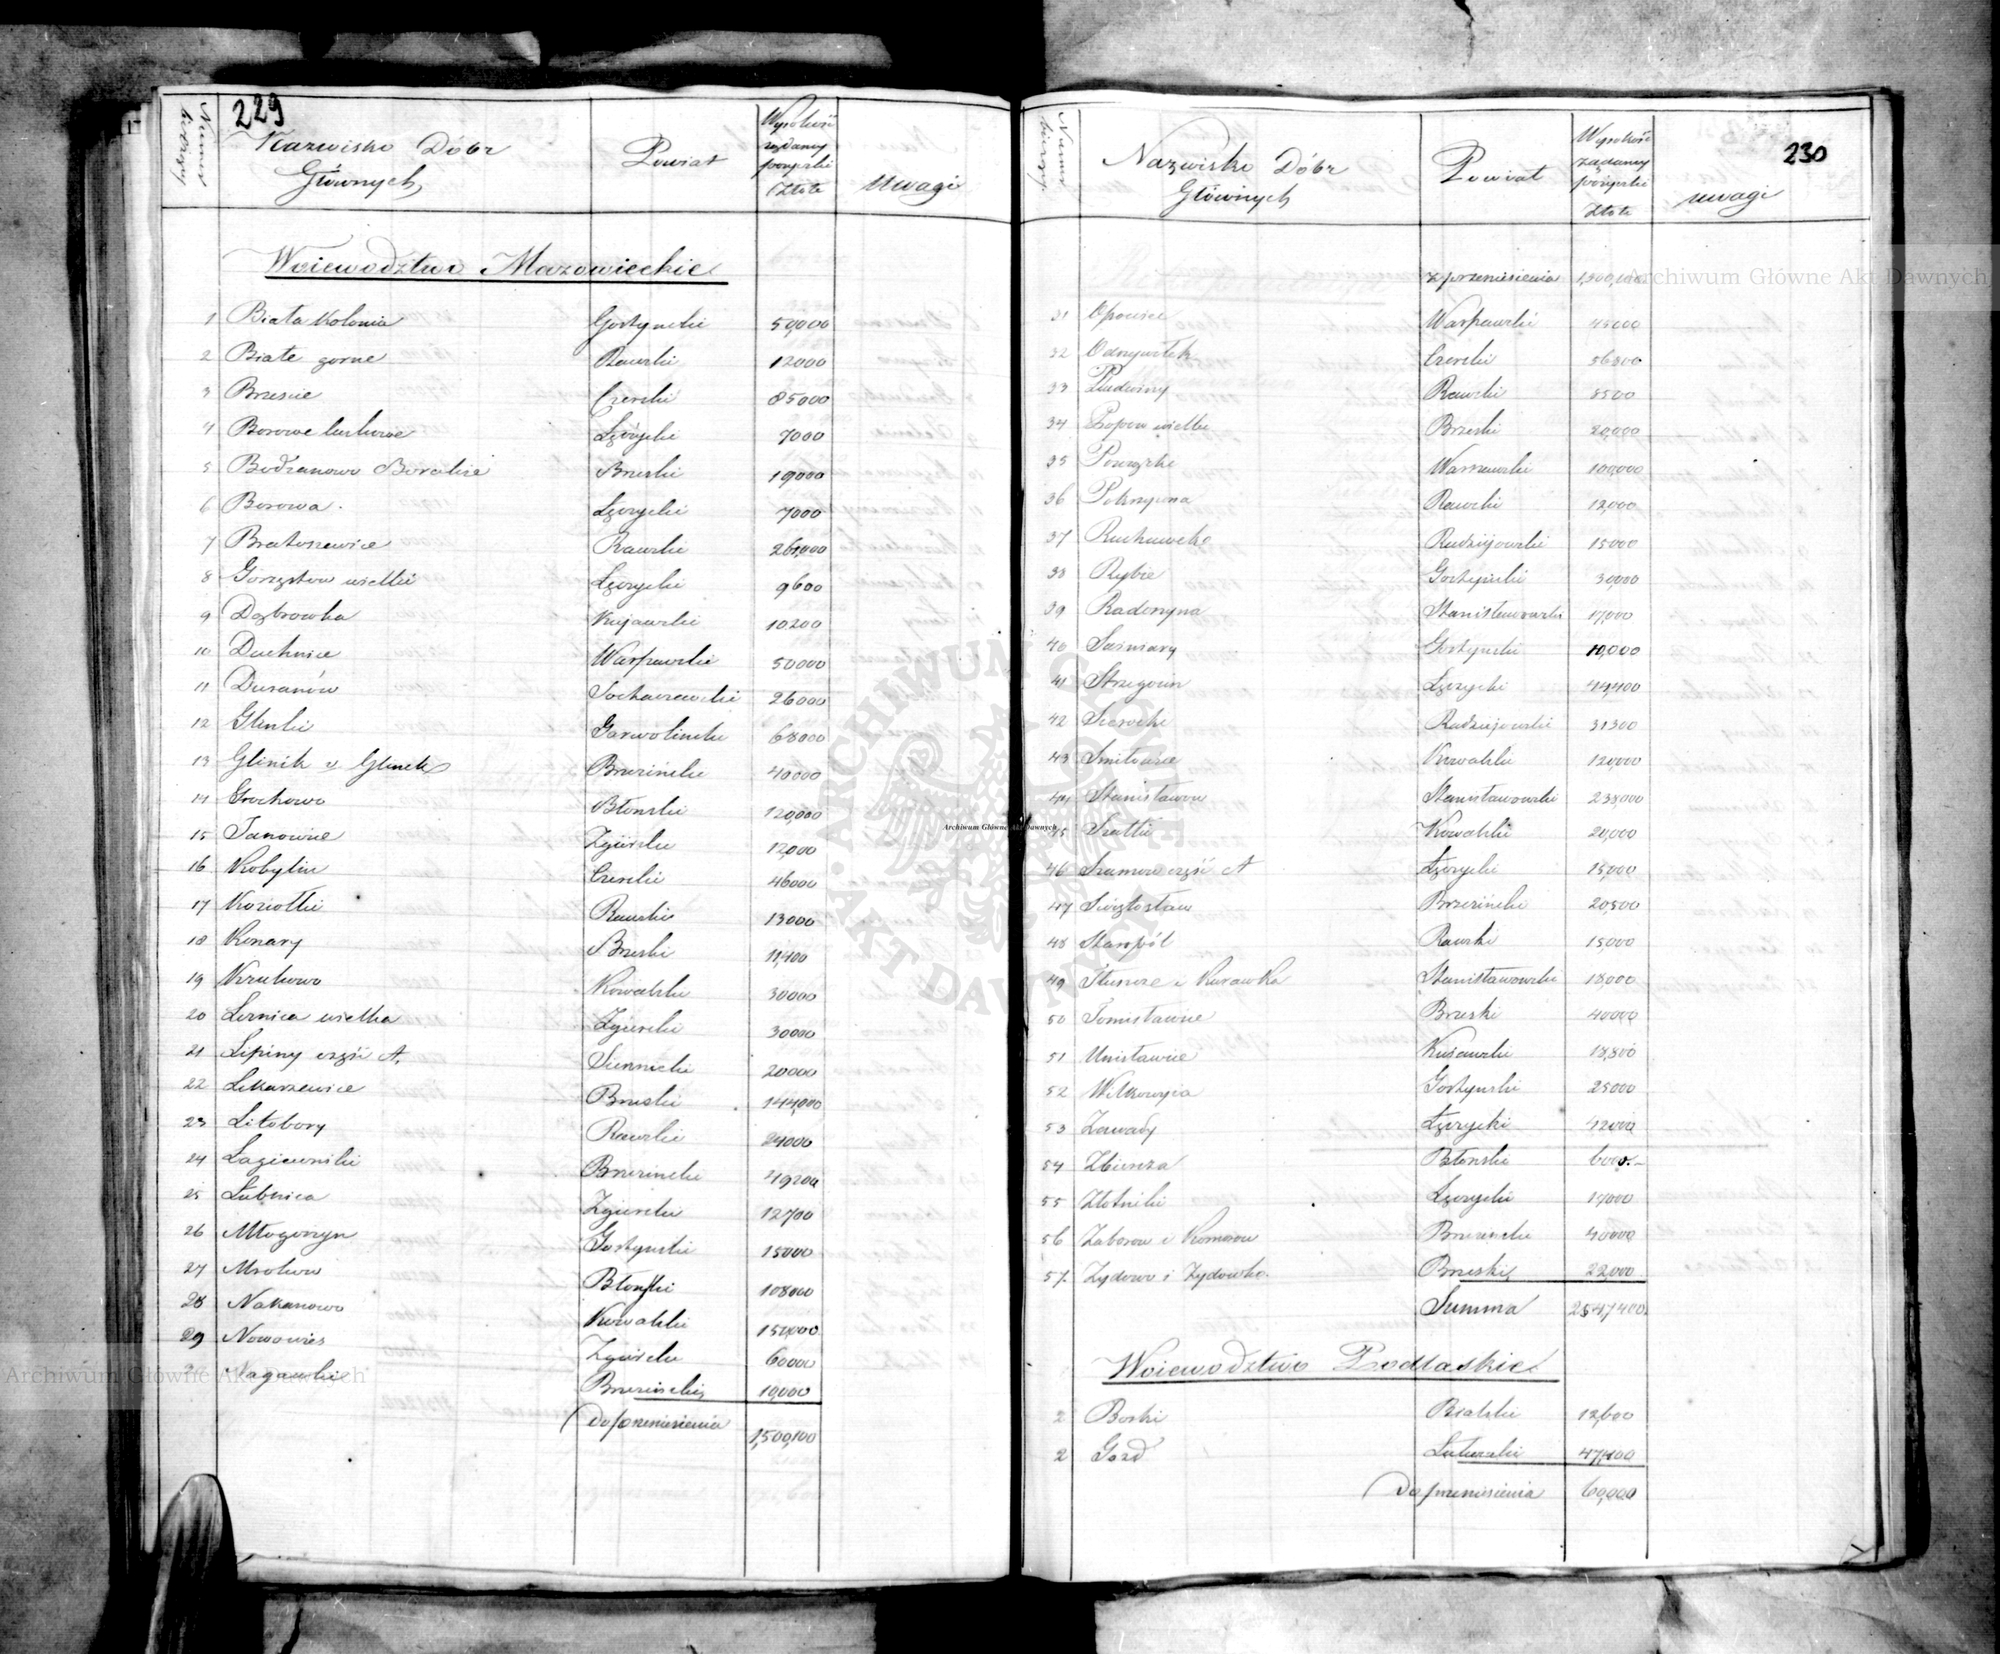 229
Numer bieżący
Nazwisko Dóbr Głównych
Powiat
Wysokość żądanej pożyczki Złote
Uwagi
Woiewodztwo Mazowieckie
1 Biała Kolonia Gostynski 50,000
2 Białe gorne Rawski 12000
3 Brzesie Czerski 85000
4 Borowe Łęczycki 7000
5 Bodzanowo Brzeski 19000
6 Borowa Łęczycki 7000
7 Bratoszewice Rawski 261,000
8 wielkie Łęczycki 9600
9 Dąbrowka Kujawski 10200
10 Duchnice Warszawski 50000
11 Duranów Sochaczewski 26000
12 Glinki Garwolinski 68000
13 Glinik v Glinek Brzezinski 40000
14 Grochowo Błonski 120,000
15 Janowice Zgierski 12,000
16 Kobylin Czerski 46000
17 Koziołki Rawski 13000
18 Konary Brzeski 11,400
19 Krukowo Kowalski 30000
20 wielka Zgierski 30000
21 Lipiny część A. Siennicki 20000
22 Lekarzewice Brzeski 144,000
23 Litobory Rawski 24000
24 Łagiewniki Brzezinski 49200
25 Łubnica Zgierski 12700
26 Młogoszyn Gostynski 15000
27 Mrokow Błonski 108000
28 Nakonowo Kowalski 150,000
29 Nowawies Zgierski 60000
Nagawki Brzezinski 10,000
Do przeniesienia 1,500,100
230
Numer bieżący
Nazwisko Dóbr Głównych
Powiat
Wysokość żądanej pożyczki Złote
Uwagi
z przeniesienia 1,500,100
31 Opacze Warszawski 45000
32 Odrzywołek Czerski 56800
33 Rawski 8500
34 Popow wielki Brzeski 20,000
35 Powązki Warszawski 100,000
36 Pokrzywna Rawski 12,000
37 Radziejowski 15000
38 Rybie Gostynski 30,000
39 Radoszyna Stanisławowski 17,000
40 Saśniary Gostynski 10,000
41 Strzegocin Łęczycki 44,400
42 Radziejowski 31300
43 Smiłowice Kowalski 120,000
44 Stanisławow Stanisławowski 238000
45 Szatki Kowalski 20,000
46 Szumow część A Łęczycki 15,000
47 Swiętosław Brzezinski 20,500
48 Staropól Rawski 15,000
49 i Kurawka Stanisławowski 18,000
50 Tomisławice Brzeski 40000
51 Unisławice Kujawski 18,800
52 Witkowyia Gostynski 25000
53 Zawady Łęczycki 42000
54 Zbiersza Błonski 6000.-
55 Złotniki Łęczycki 14000
56 Zaborow i Komorow Brzezinski 40000
57. Zydowo i Zydowko. Brzeski 22,000
Summa 2547400
Woiewodztwo Podlaskie.
2 Borki Bialski 12,600
2 Gozd Łukowski 47,400
Do przeniesienia 60,000
Archiwum Główne Akt Dawnych
Archiwum Główne Akt Dawnych
Archiwum Główne Akt Dawnych
ARCHIWUM GŁÓWNE AKT DAWNYCH